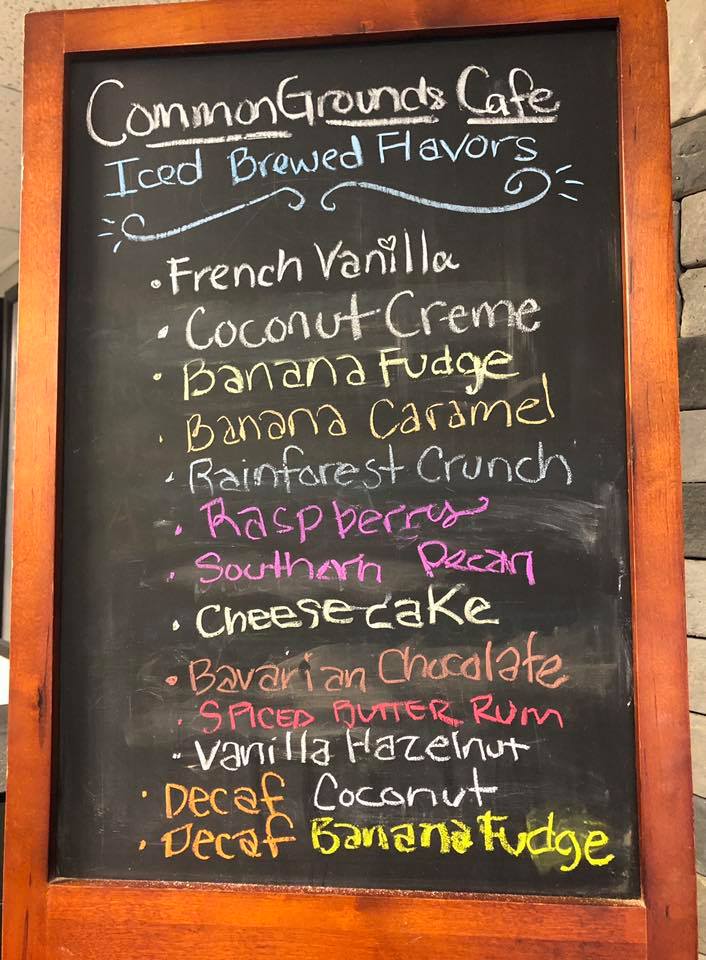 CommonGrounds Cafe
Iced Brewed Flavors
• French Vanilla
• Coconut Creme
• Banana Fudge
• Banana Caramel
• Rainforest Crunch
• Raspberry
• Southern Pecan
• Cheesecake
• Bavarian Chocolate
• SPICED BUTTER RUM
• Vanilla Hazelnut
• Decaf Coconut
• Decaf Banana Fudge